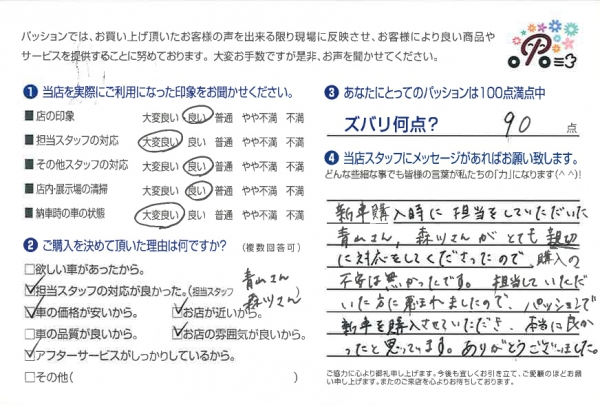 パッションでは、お買い上げ頂いたお客様の声を出来る限り現場に反映させ、お客様により良い商品や
サービスを提供することに努めております。大変お手数ですが是非、お声を聞かせてください。
❶ 当店を実際にご利用になった印象をお聞かせください。
■ 店の印象 大変良い 良い 普通 やや不満 不満
■ 担当スタッフの対応 大変良い 良い 普通 やや不満 不満
■ その他スタッフの対応 大変良い 良い 普通 やや不満 不満
■ 店内・展示場の清掃 大変良い 良い 普通 やや不満 不満
■ 納車時の車の状態 大変良い 良い 普通 やや不満 不満
❷ ご購入を決めて頂いた理由は何ですか? (複数回答可)
□欲しい車があったから。
☑担当スタッフの対応が良かった。(担当スタッフ 青山さん 森ツさん )
☑車の価格が安いから。 ☑お店が近いから。
□車の品質が良いから。 ☑お店の雰囲気が良いから。
☑アフターサービスがしっかりしているから。
□その他( )
❸ あなたにとってのパッションは100点満点中
ズバリ何点? 90 点
❹ 当店スタッフにメッセージがあればお願い致します。
どんな些細な事でも皆様の言葉が私たちの「力」になります(^ ^)!
新車購入時に担当をしていただいた
青山さん、森ツさんがとても親切
に対応をしてくださったので、購入の
不安は無かったです。担当していただ
いた方に恵まれましたので、パッションで
新車を購入させていただき、本当に良か
ったと思っています。ありがとうございました。
ご協力に心より御礼申し上げます。今後も宜しくお引き立て、ご愛顧のほどお願
い申し上げます。またのご来店を心よりお待ちしております。